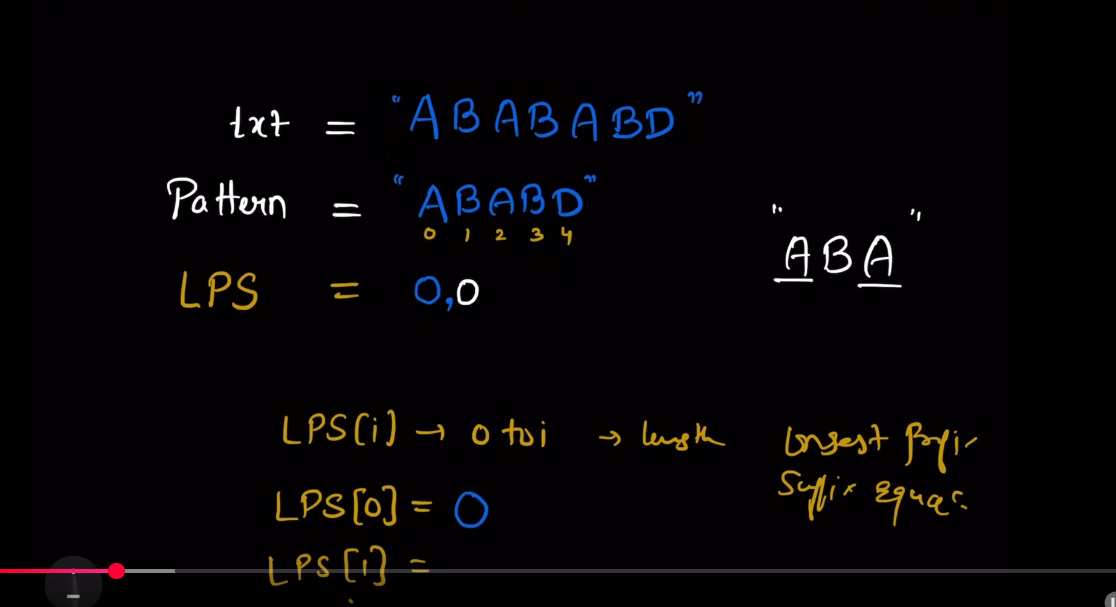 txt = "ABABABD"
Pattern = "ABABD"
0 1 2 3 4
"ABA"
LPS = 0,0
LPS(i) → 0 to i → length Longest Prefix
Suffix Equal
LPS[0] = 0
LPS[1] =